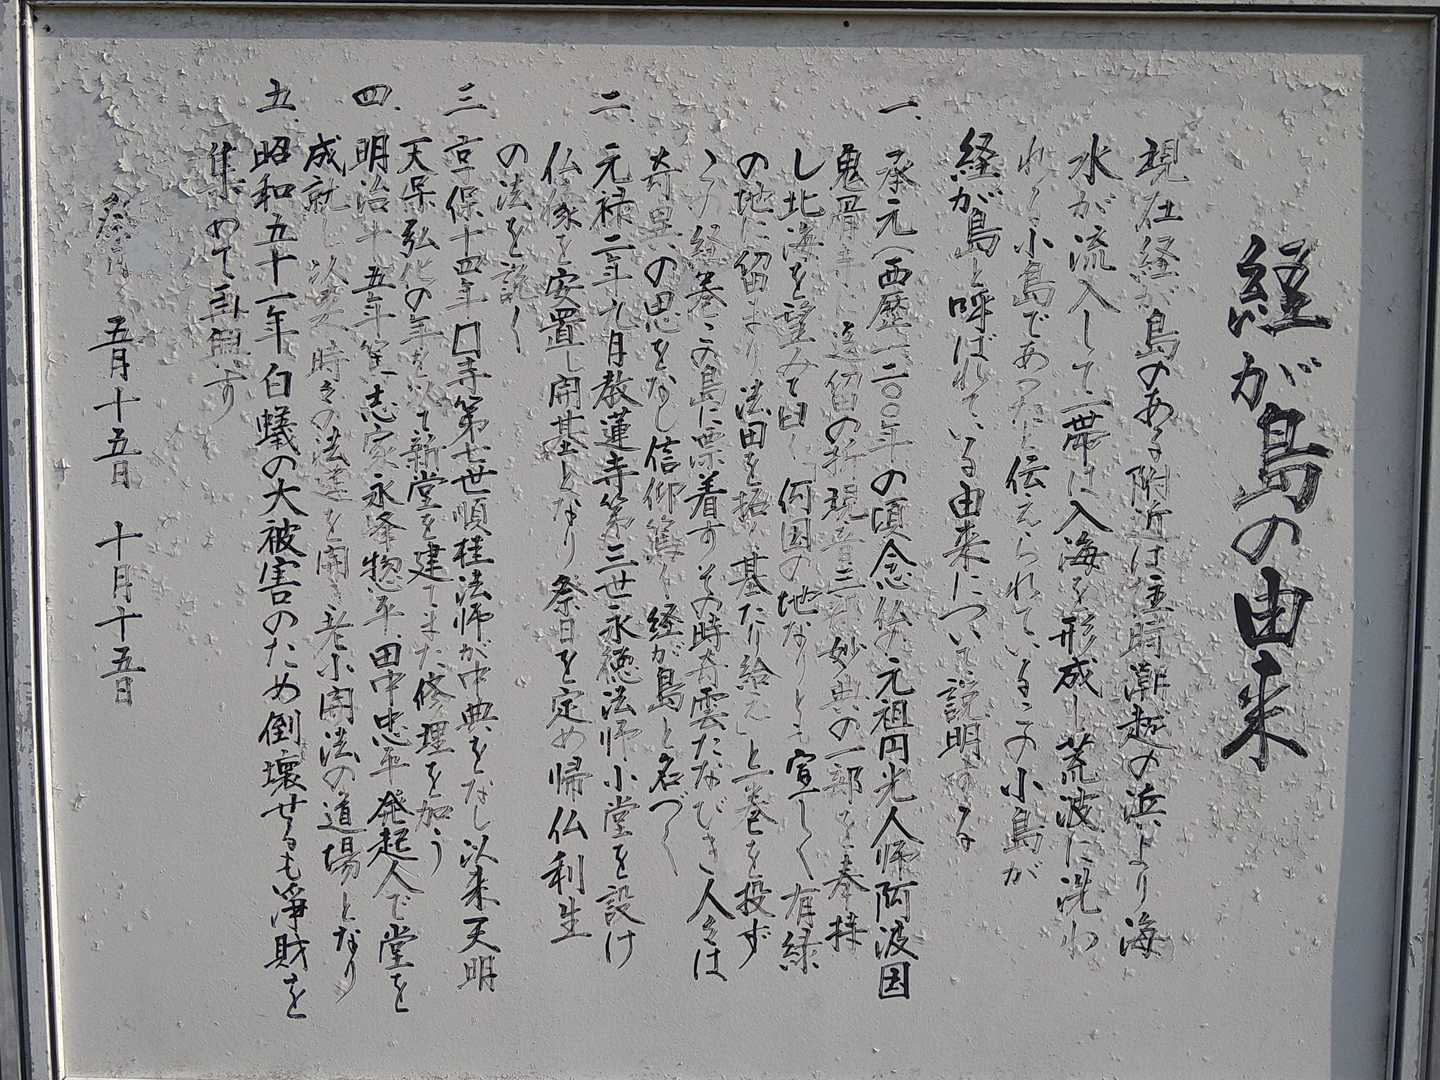 経が島の由来
現在経が島のある附近は往時潮越の浜より海
水が流入して一帯は入海を形成し荒波に洗わ
れる小島であったと伝えられているこの小島が
経が島と呼ばれている由来について説明する
一、承元(西歴一二〇〇年の頃念仏元祖円光大師阿波因
鬼骨寺に逗留の折現音三部妙典の一部を奉持
し北海を望みて曰く何国の地なりとも宜しく有縁
の地に留まり法田を拓く基たり給えと上巻を投ず
この経巻この島に票着すその時奇雲たなびき人々は
奇異の思をなし信仰篤く経が島と名づく
二、元禄二年九月教蓮寺第三世永徳法師小堂を設け
仏像を安置し開基となり祭日を定め帰仏利生
の法を説く
三、享保十四年口寺第七世順桂法師が中典をなし以来天明
天保弘化の年を以て新堂を建てまた修理を加う
四、明治十五年篤志家永峰惣平、田中忠平発起人で堂を
成就し以来時々の法莚を開き老小開法の道場となり
五、昭和五十一年白蟻の大被害のため倒壊せるも浄財を
集めて再興す
祭日 五月十五日 十月十五日